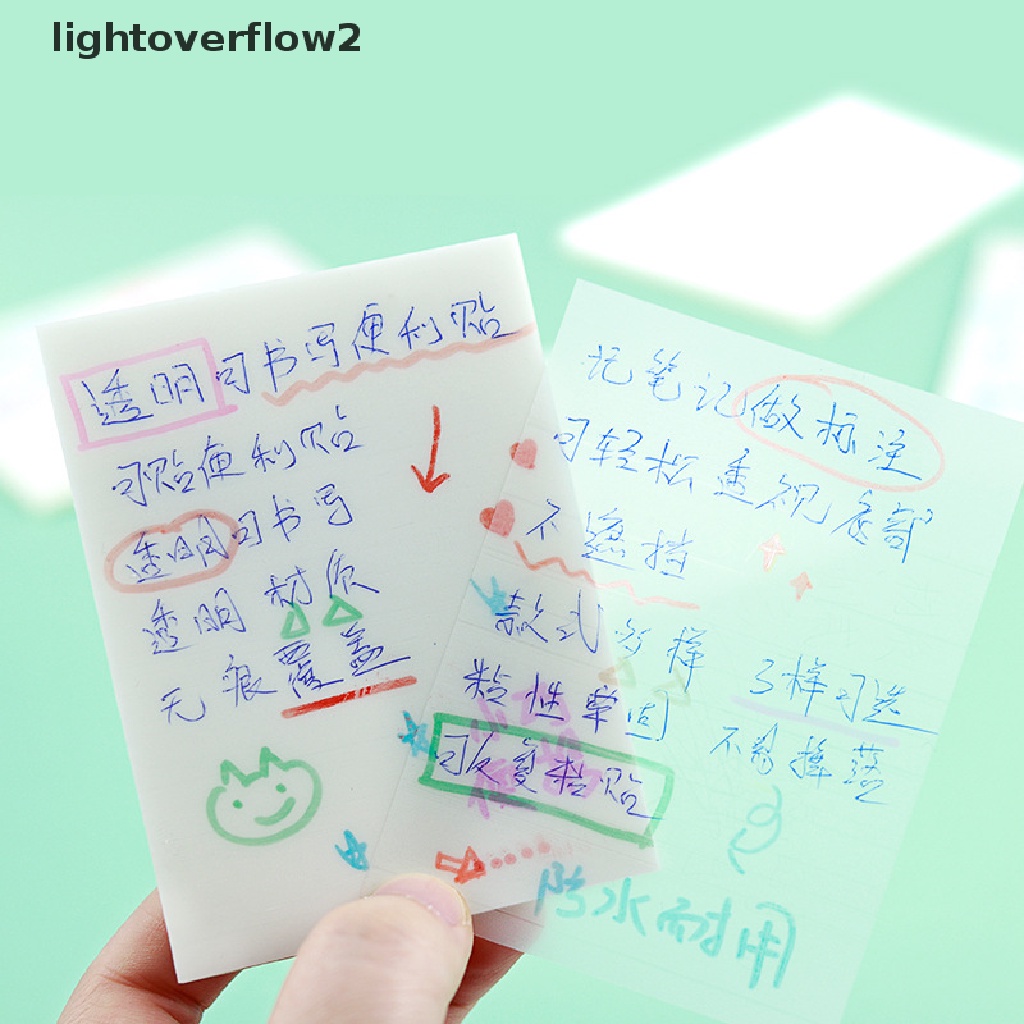 lightoverflow2
透明可书写便利贴
可贴便利贴
透明可书写
透明 材质
无痕覆盖
记笔记做标注
可轻松透视底部
不遮挡
款式多样 3样可选
粘性牢固 不易掉落
可反复粘贴
防水耐用